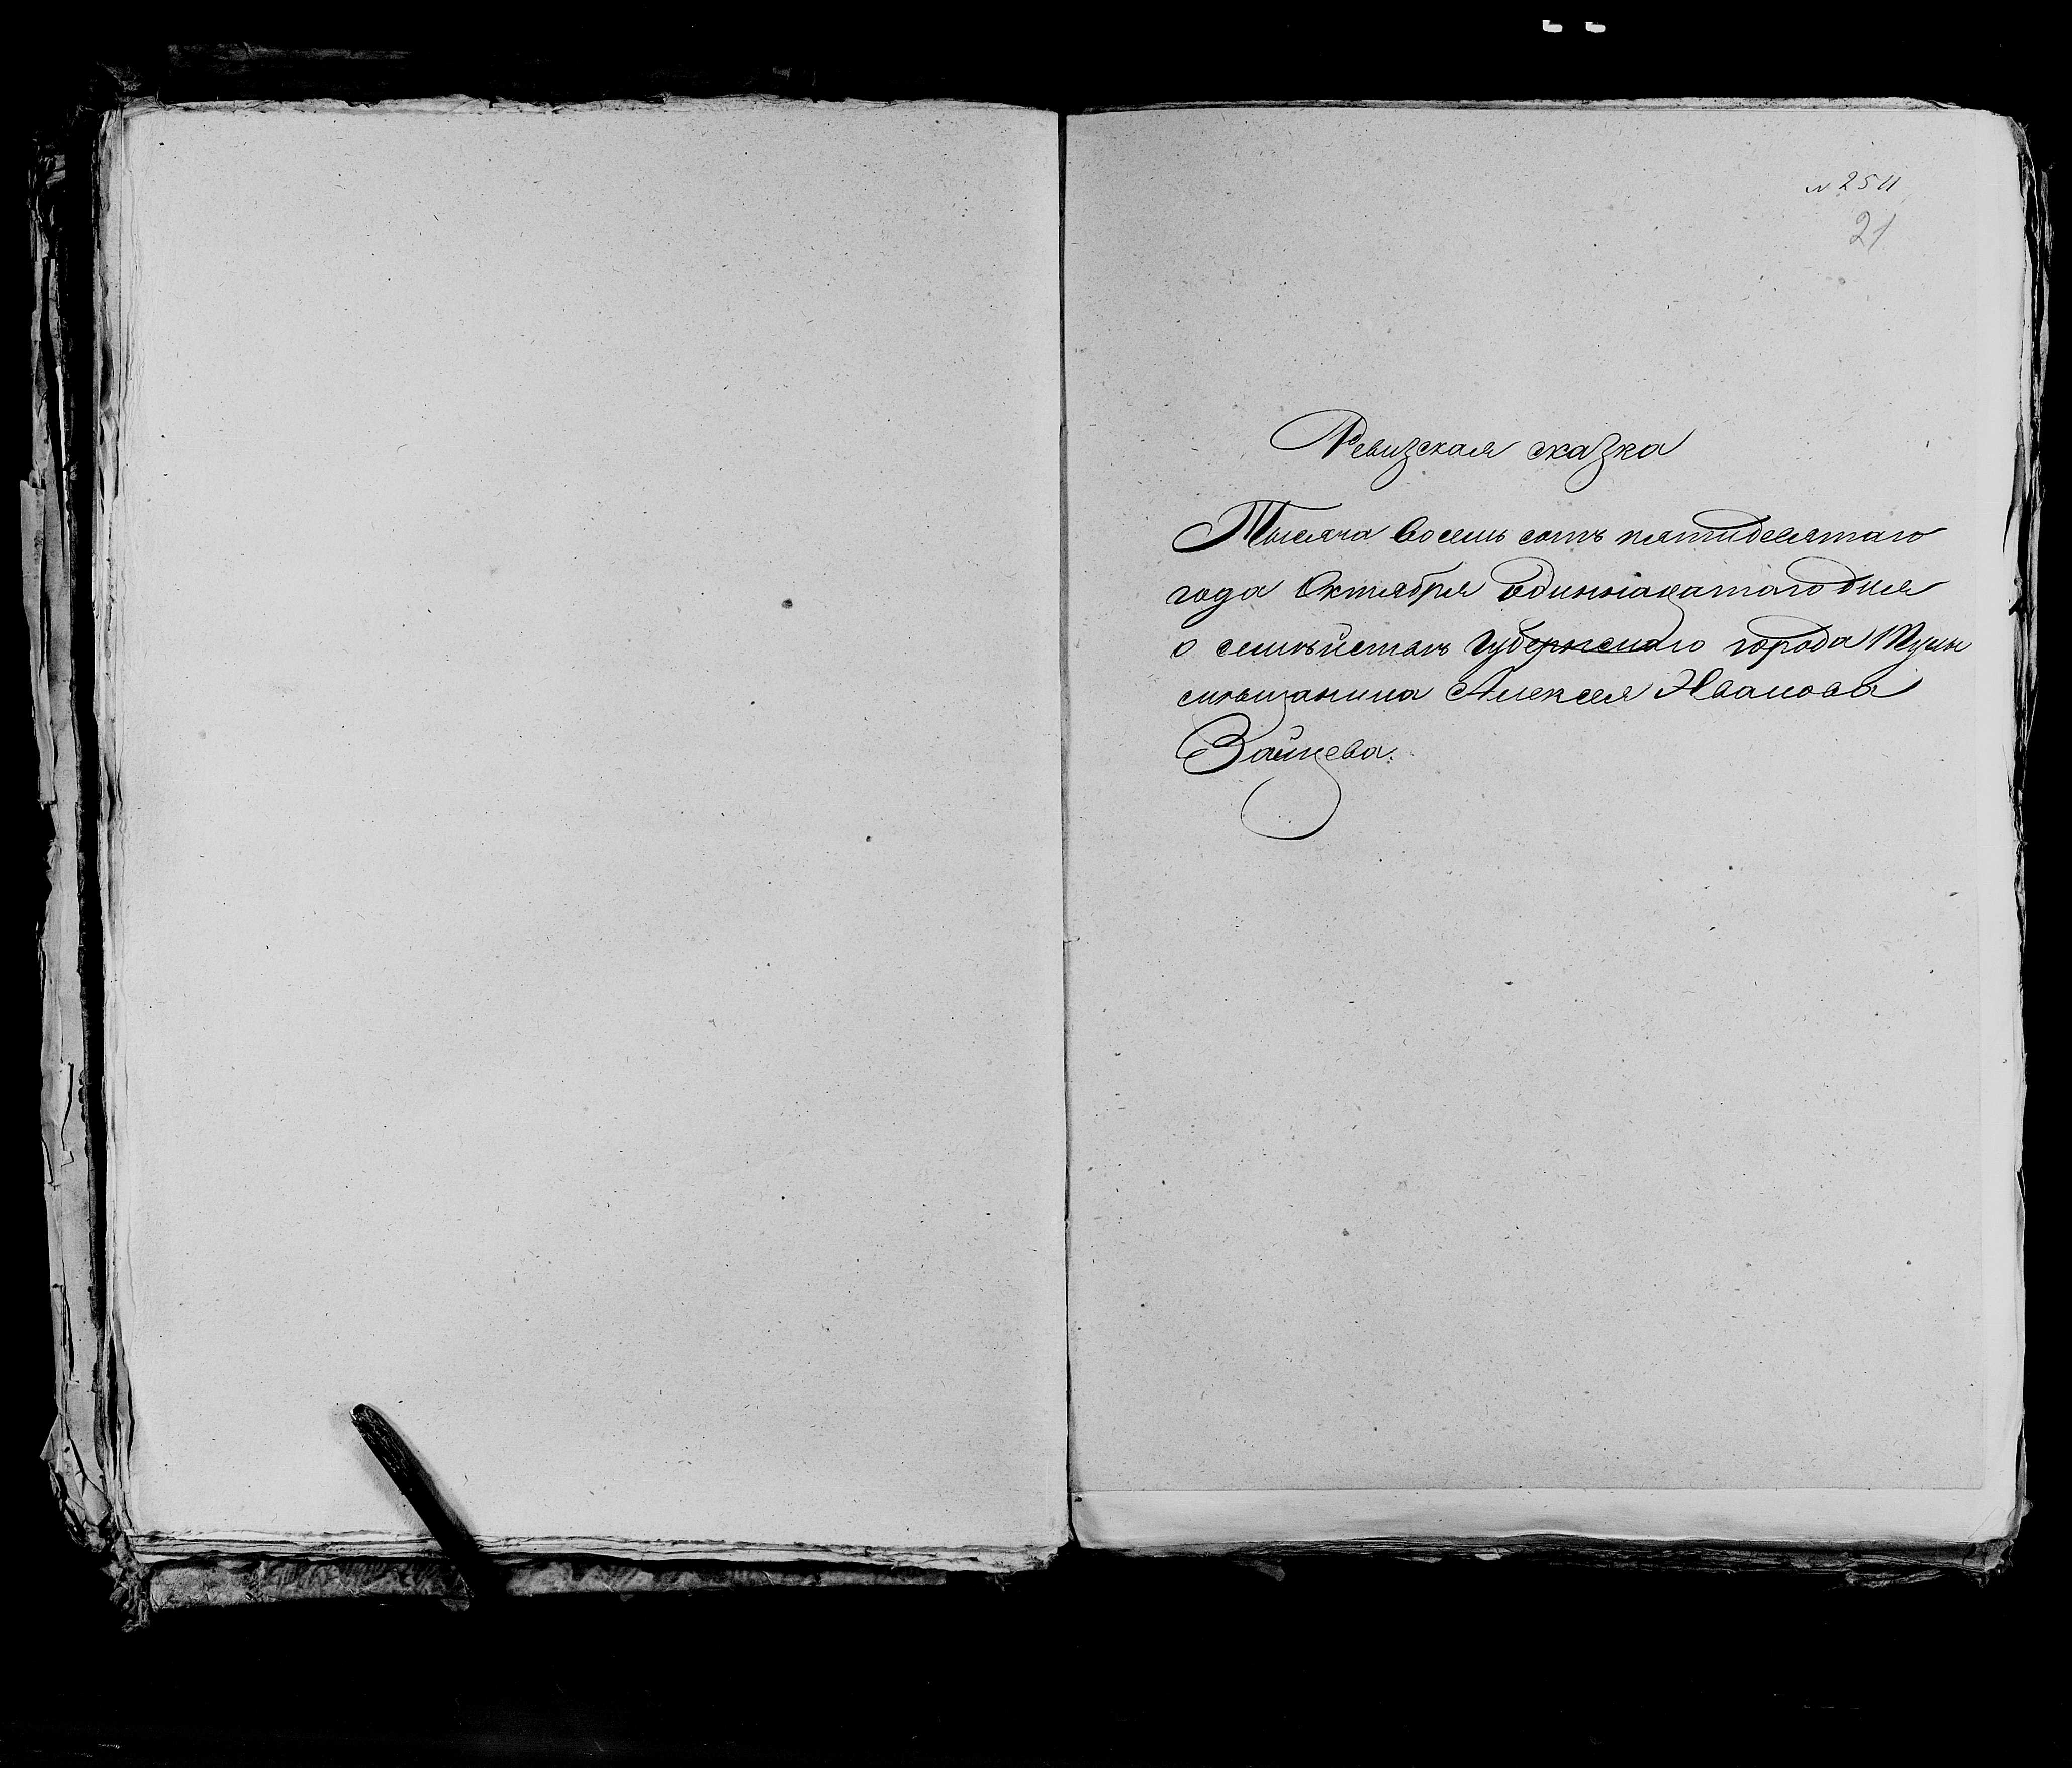 № 2511
21
Ревизская сказка
Тысяча восемь сотъ пятидесятаго
года Октября одиннадцатаго дня
о семѣйствѣ Губернскаго города Тулы
мѣщанина Алексея Иванова
Зайцева.